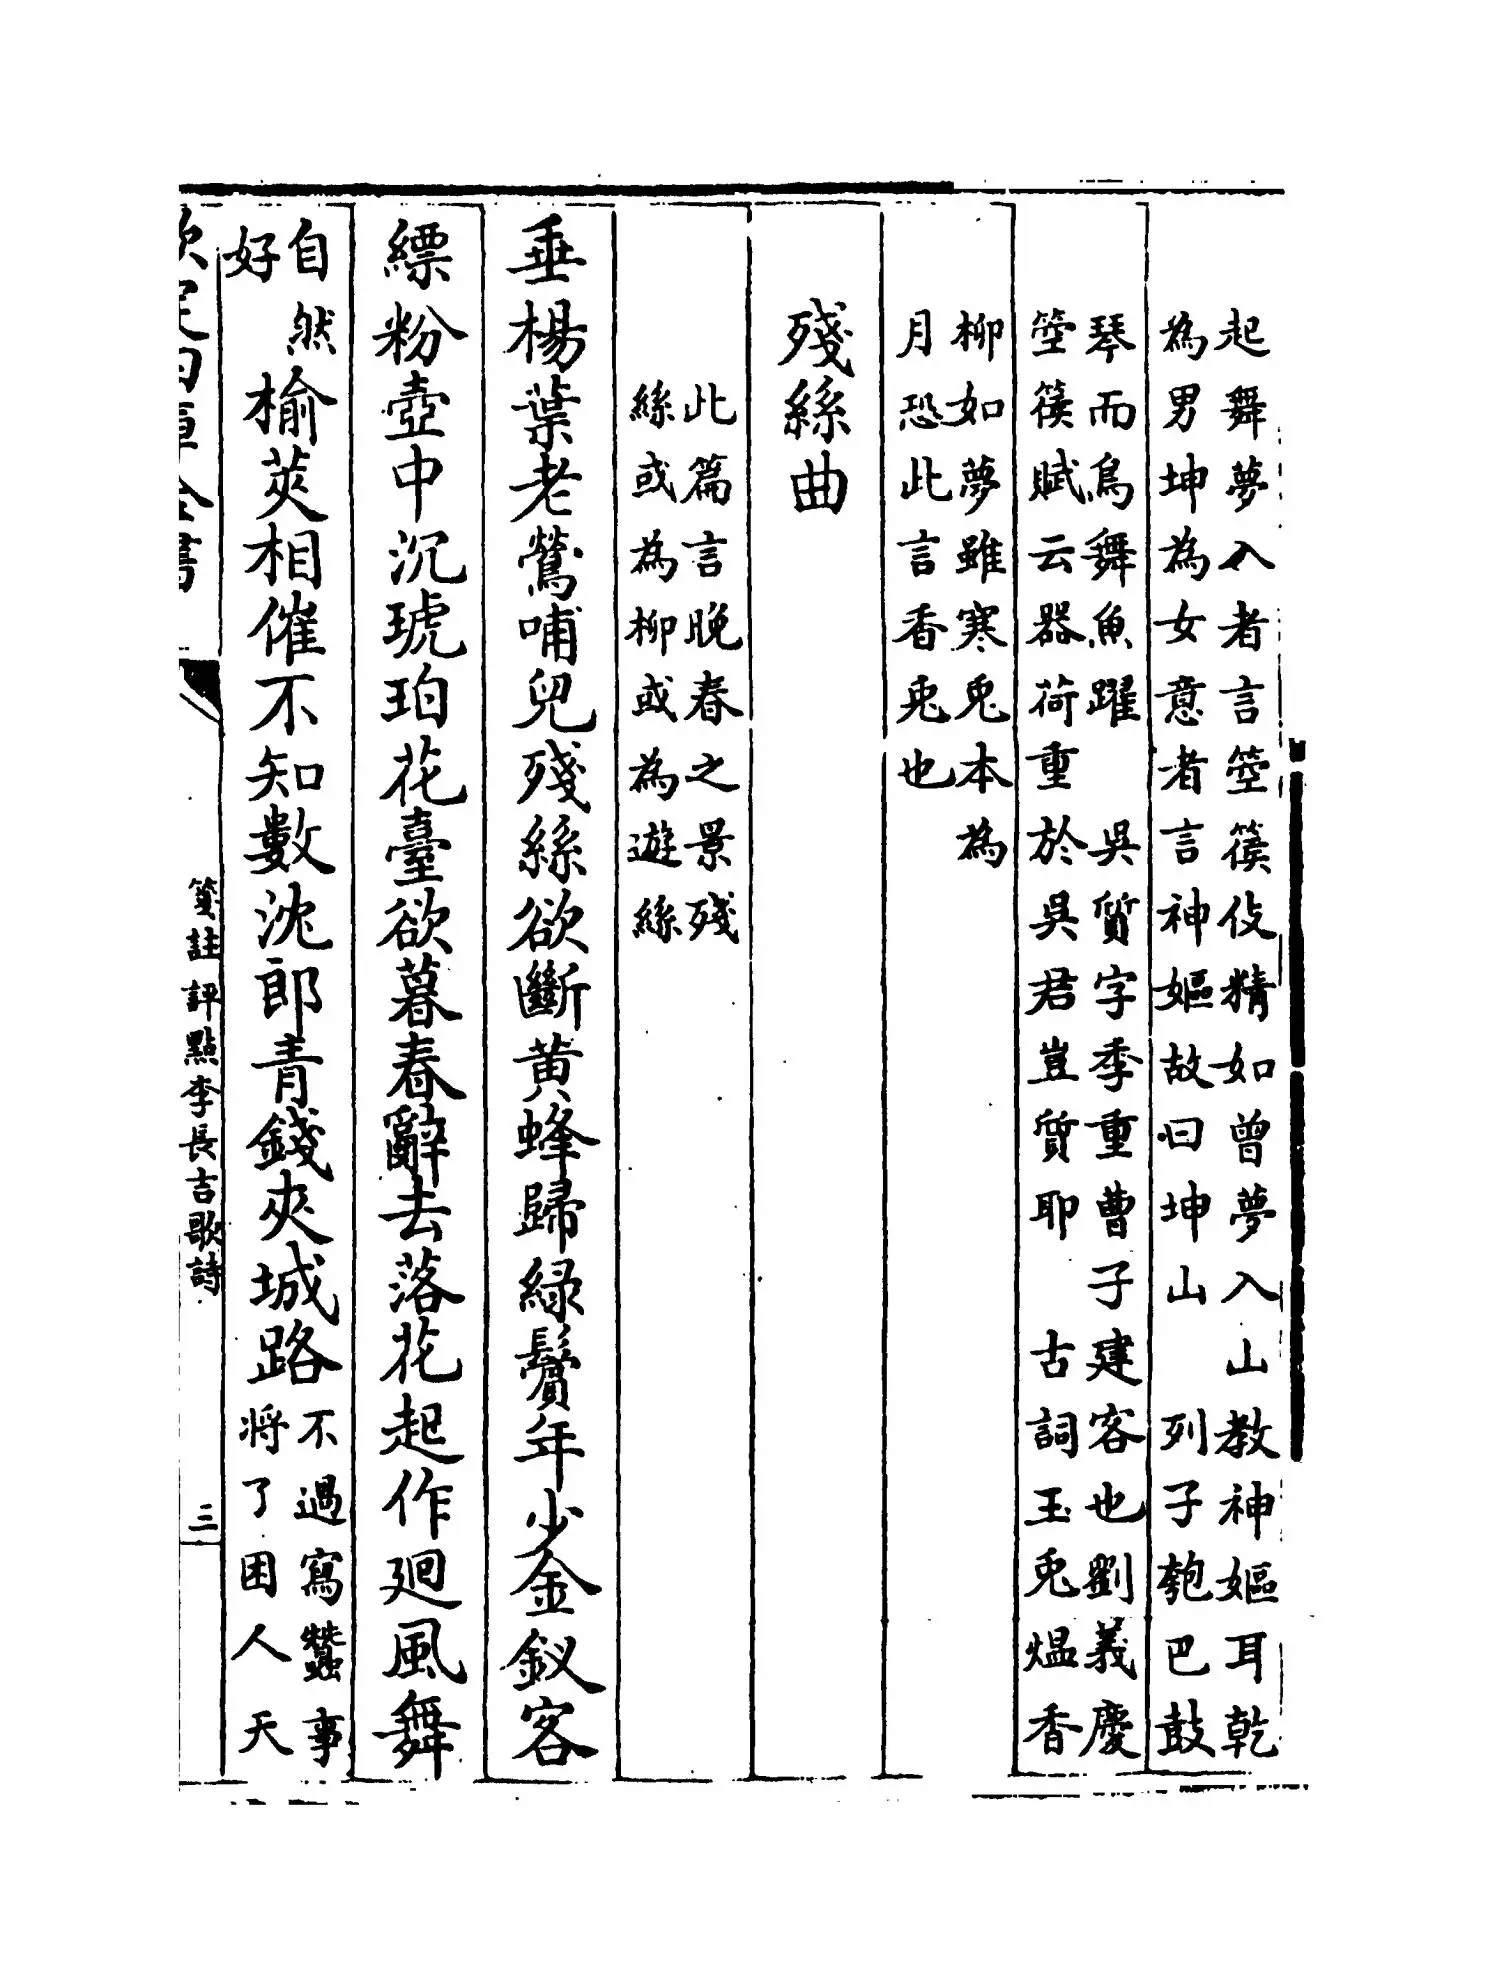 起舞夢入者言箜篌伎精如曾夢入山教神嫗耳乾
為男坤為女意者言神嫗故曰坤山　列子匏巴鼓
琴而鳥舞魚躍　吳質字季重曹子建客也劉義慶
箜篌賦云器荷重於吳君豈質耶　古詞玉兎煴香
柳如夢雖寒兎本為
月恐此言香兎也
殘絲曲
此篇言晚春之景殘
絲或為柳或為遊絲
垂楊葉老鶯哺兒殘絲欲斷黃蜂歸綠鬢年少金釵客
縹粉壺中沉琥珀花臺欲暮春辭去落花起作廻風舞
自然
好
榆莢相催不知數沈郎青錢夾城路
不過寫蠶事
將了困人天
欽定四庫全書
箋註評點李長吉歌詩
三